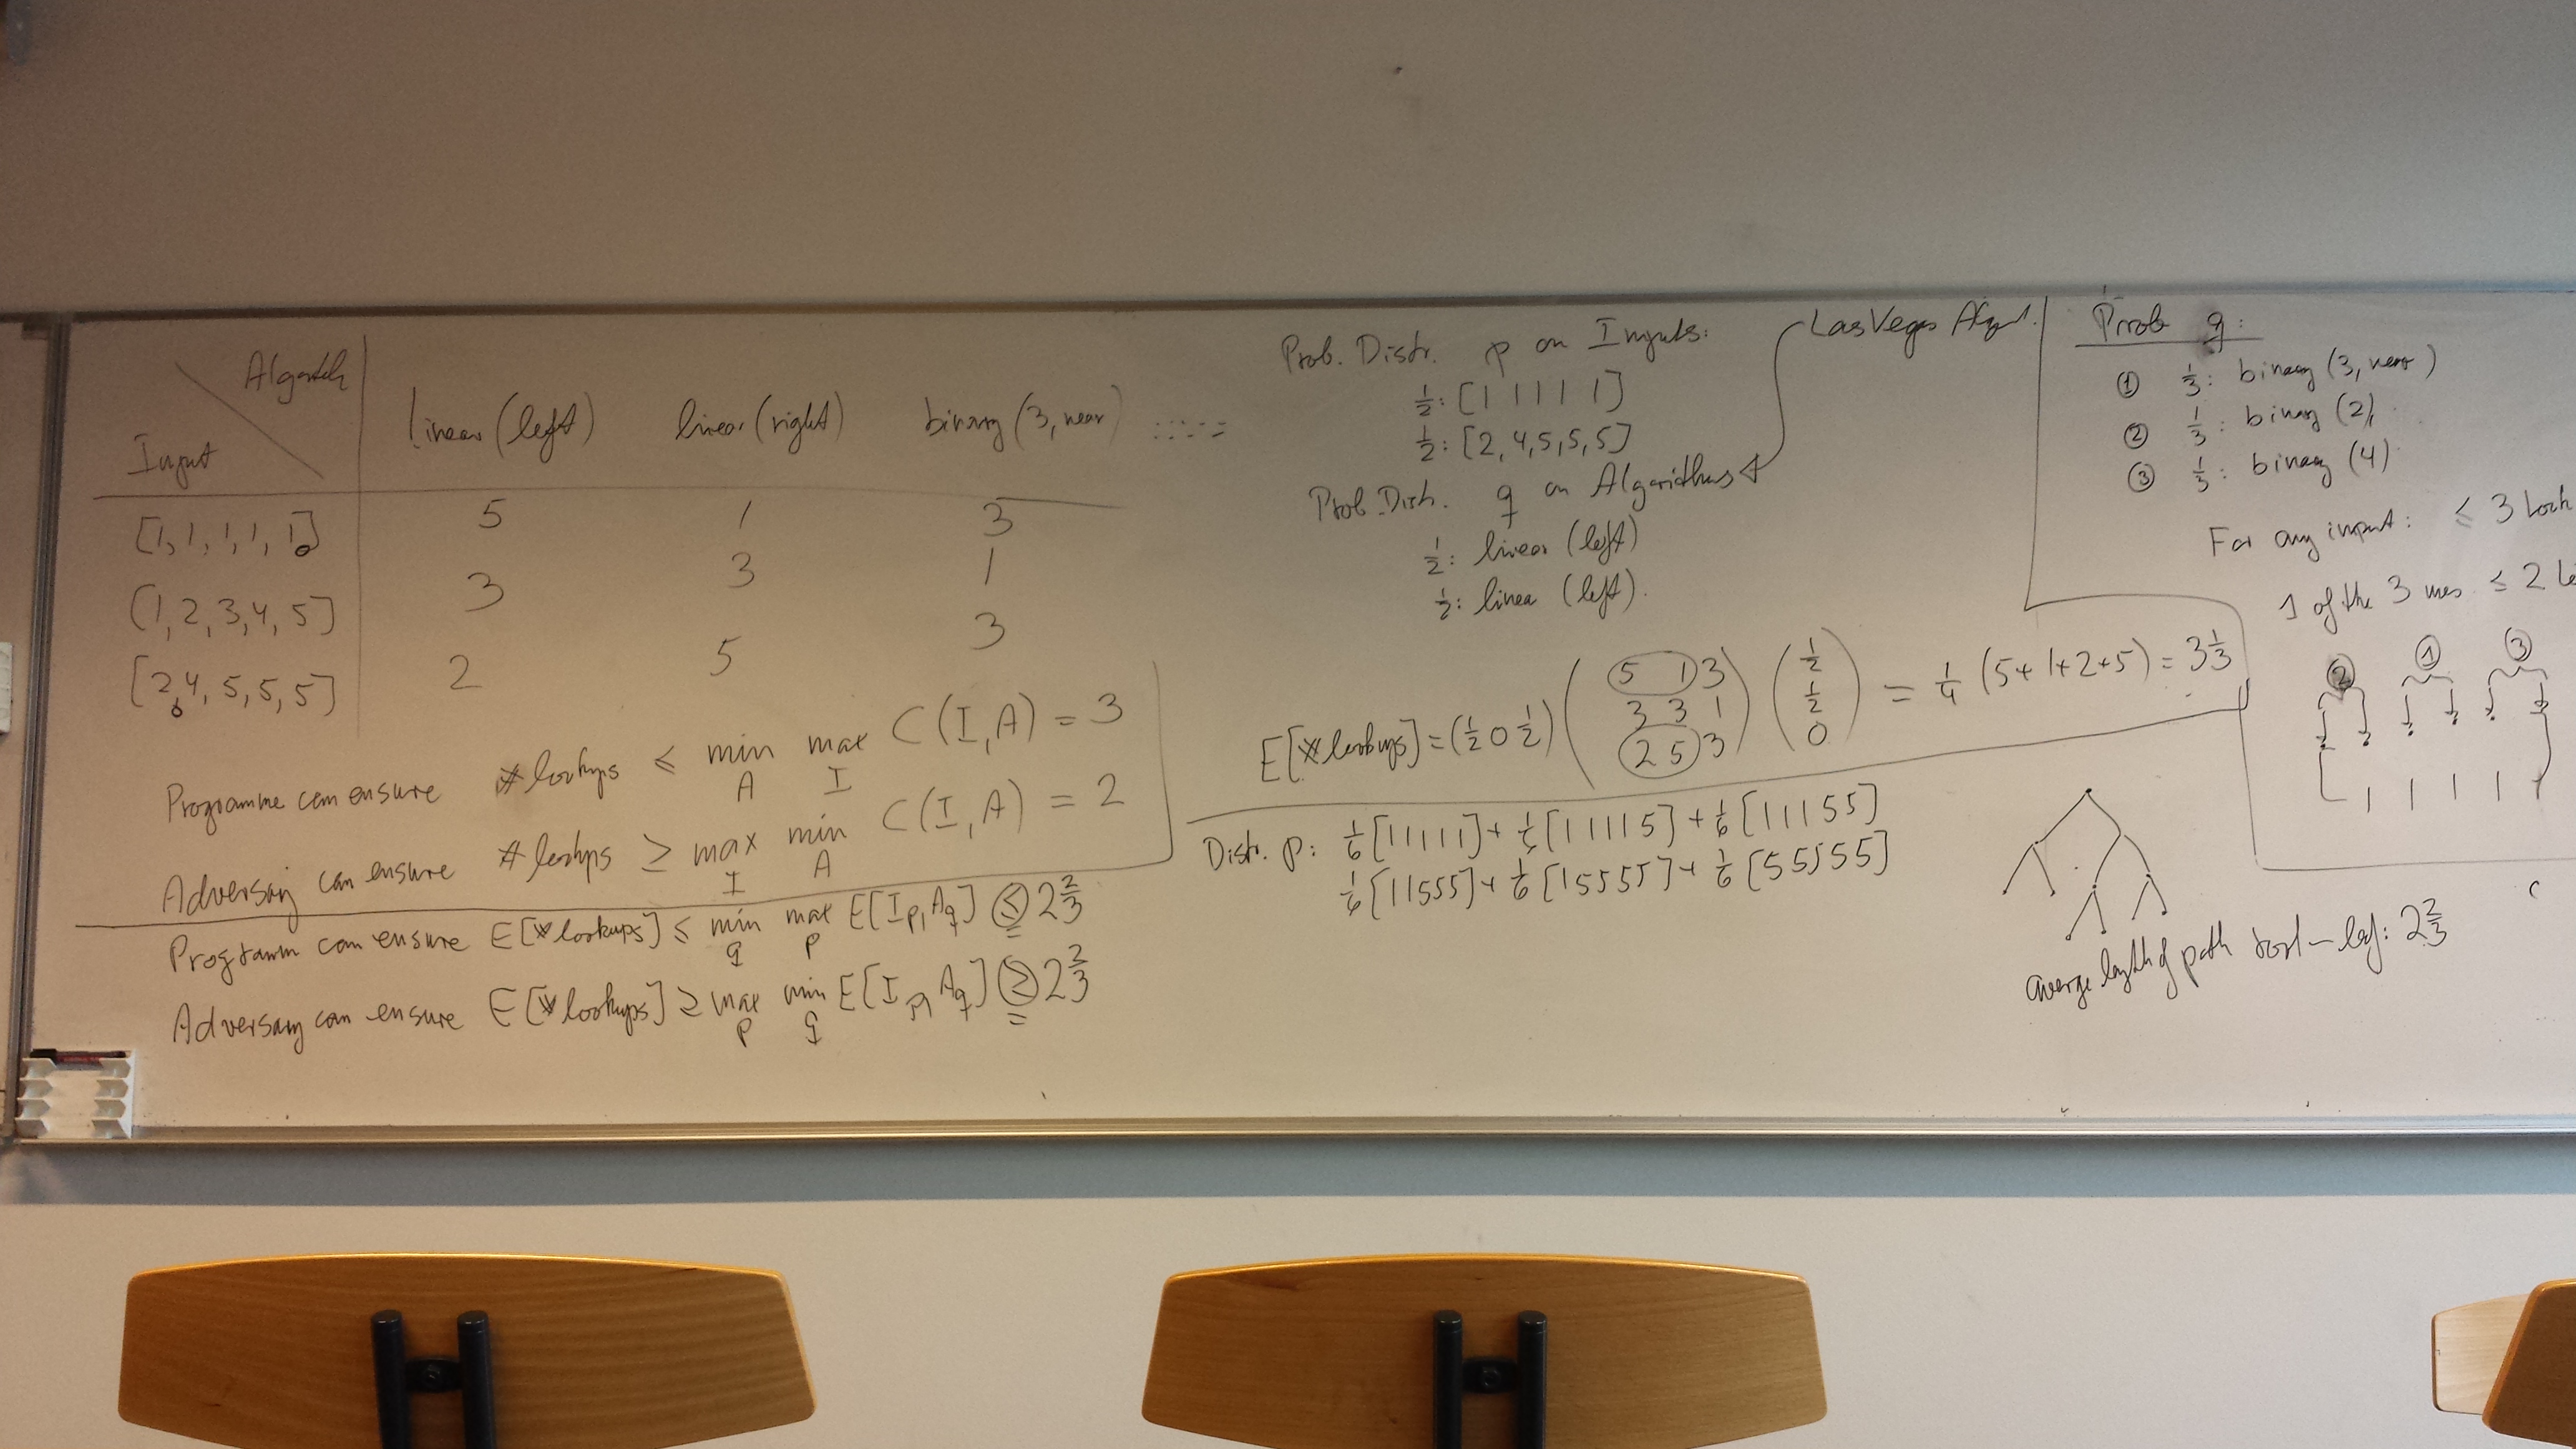 Algorith
Input
linear (left) linear (right) binary (3, near) ::::=
[1, 1, 1, 1, 1] 5 1 3
(1, 2, 3, 4, 5] 3 3 1
[2, 4, 5, 5, 5] 2 5 3
Programme can ensure # lookups ≤ min max C(I, A) = 3
A I
Adversary can ensure # lookups ≥ max min C(I, A) = 2
I A
Program can ensure E[# lookups] ≤ min max E[I_p, A_q] ≤ 2 2/3
q p
Adversary can ensure E[# lookups] ≥ max min E[I_p, A_q] ≥ 2 2/3
p q
Prob. Distr. p on Inputs:
1/2: [1 1 1 1 1]
1/2: [2, 4, 5, 5, 5]
Prob. Distr. q on Algorithms
1/2: linear (left)
1/2: linea (left).
Las Vegas Algort.
E[# lookups] = (1/2 0 1/2) (5 1 3
3 3 1
2 5 3) (1/2
1/2
0) = 1/4 (5+1+2+5) = 3 1/3
Distr. p: 1/6 [1 1 1 1 1] + 1/6 [1 1 1 1 5] + 1/6 [1 1 1 5 5]
1/6 [1 1 5 5 5] + 1/6 [1 5 5 5 5] + 1/6 [5 5 5 5 5]
Prob q:
① 1/3: binary (3, near)
② 1/3: binary (2),
③ 1/3: binary (4)
For any input: ≤ 3 Look
1 of the 3 ≤ 2
② ① ③
average length of path root – leaf: 2 2/3